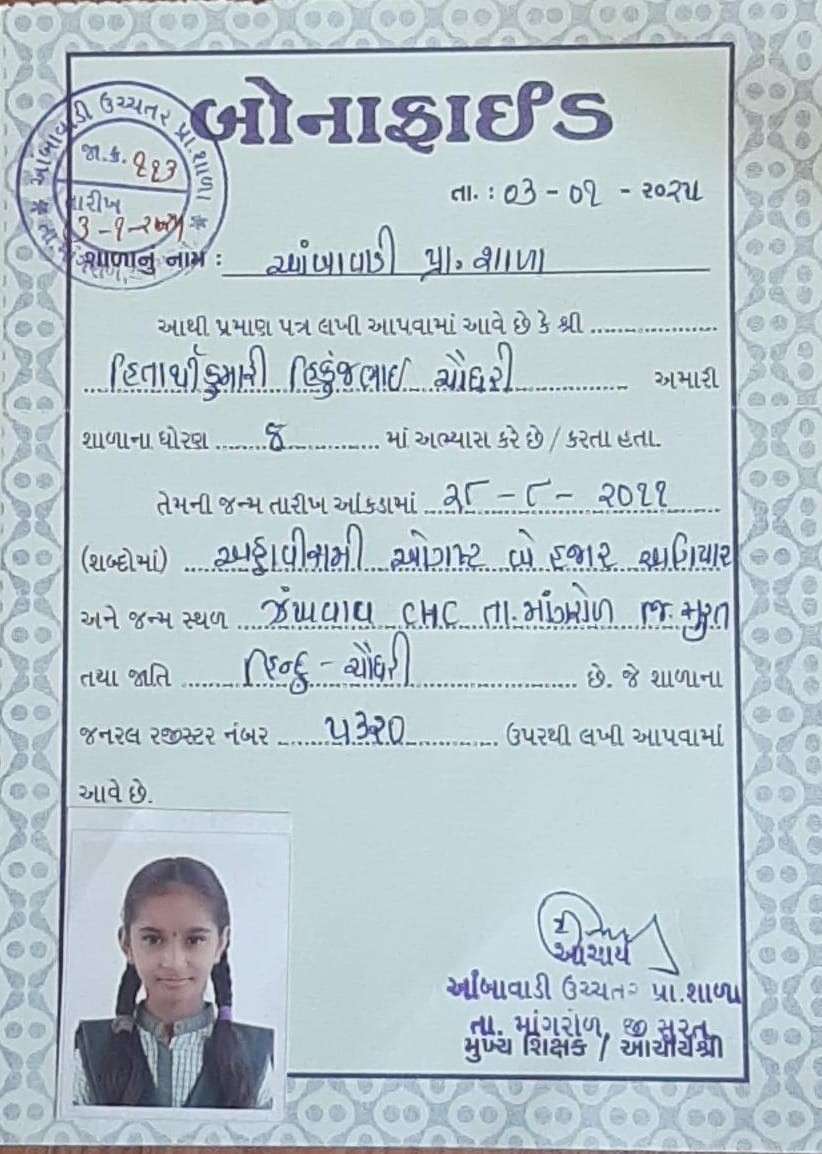 બોનાફાઈડ
આંબાવાડી ઉચ્ચતર પ્રા.શાળા
જા.ક. ૧૧૩
તારીખ
3-૧-૨૦૨૫
તા. : ૦૩ - ૦૧ - ૨૦૨૫
શાળાનું નામ : આંબાવાડી પ્રા. શાળા
આથી પ્રમાણ પત્ર લખી આપવામાં આવે છે કે શ્રી ....................
હિતાર્થીકુમારી હિકુંજભાઈ ચૌધરી અમારી
શાળાના ધોરણ ૮ માં અભ્યાસ કરે છે / કરતા હતા.
તેમની જન્મ તારીખ આંકડામાં ૨૮ - ૮ - ૨૦૧૧
(શબ્દોમાં) અઠ્ઠાવીસમી ઓગષ્ટ બે હજાર અગિયાર
અને જન્મ સ્થળ ઝંખવાવ CHC તા. માંગરોળ જિ. સુરત
તથા જાતિ હિન્દુ - ચૌધરી છે. જે શાળાના
જનરલ રજીસ્ટર નંબર ૫૩૨૦ ઉપરથી લખી આપવામાં
આવે છે.
આચાર્ય
આંબાવાડી ઉચ્ચતર પ્રા.શાળા
તા. માંગરોળ, જી સુરત
મુખ્ય શિક્ષક / આચાર્યશ્રી